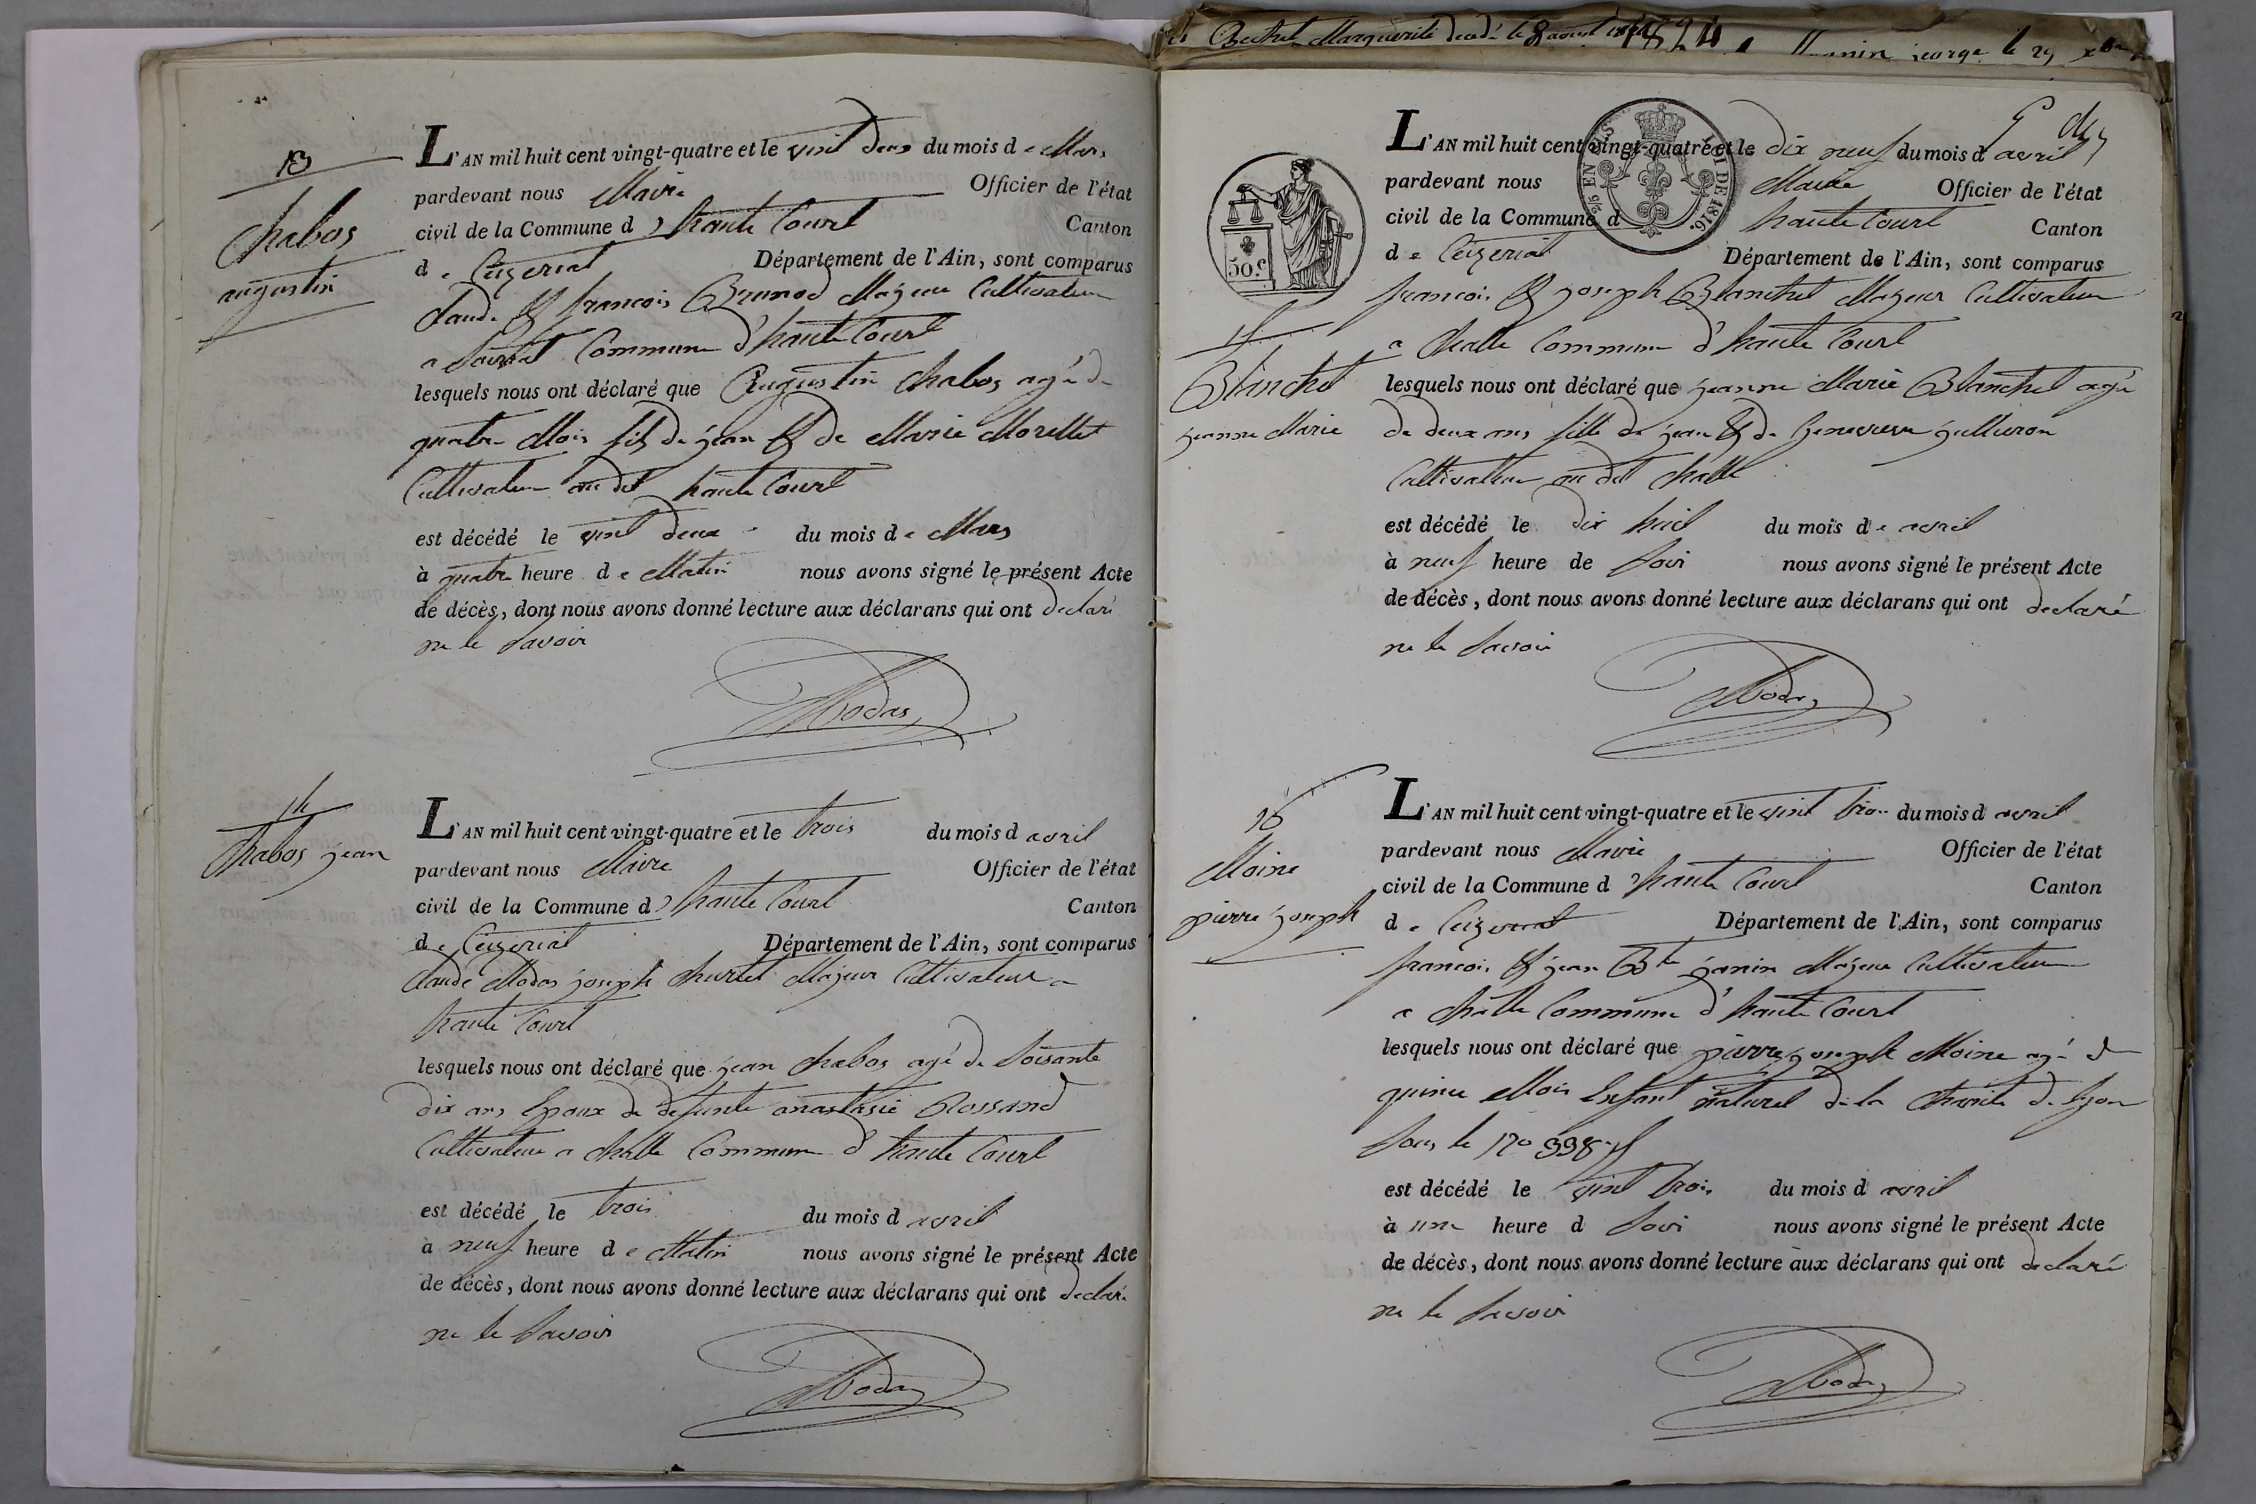 13
chabos
augustin
L'AN mil huit cent vingt-quatre et le vint deux du mois de Mars
pardevant nous Maire Officier de l'état
civil de la Commune d'haute Court Canton
de Ceizeriat Département de l'Ain, sont comparus
claude & francois Brunod Majeur Cultivateur
a Commune d'haute Court
lesquels nous ont déclaré que Augustin chabos agé de
quatre Mois fils de jean & de Marie Morellet
Cultivateur au dit haute Court
est décédé le vint deux du mois de Mars
à quatre heure de Matin nous avons signé le présent Acte
de décès, dont nous avons donné lecture aux déclarans qui ont declaré
ne le savoir
Modas
14
chabos jean
L'AN mil huit cent vingt-quatre et le trois du mois d avril
pardevant nous Maire Officier de l'état
civil de la Commune d'haute Court Canton
de Ceizeriat Département de l'Ain, sont comparus
claude Modas joseph churlet Majeur Cultivateur a
haute Court
lesquels nous ont déclaré que jean chabos agé de soisante
dix ans Epoux de defunte anastasie Rossand
Cultivateur a challe Commune d'haute Court
est décédé le trois du mois d avril
à neuf heure de Matin nous avons signé le présent Acte
de décès, dont nous avons donné lecture aux déclarans qui ont declaré
ne le savoir
Modas
Marguerite decedé le 8 avril 1824 janin george le 29 xbre
50 C.
25 EN SUS
LOI DE 1816.
15
Blanchet
jeanne Marie
L'AN mil huit cent vingt-quatre et le dix neuf du mois d avril
pardevant nous Maire Officier de l'état
civil de la Commune d haute Court Canton
de Ceizeriat Département de l'Ain, sont comparus
francois & joseph Blanchet Majeur Cultivateur
a challe Commune d'haute Court
lesquels nous ont déclaré que jeanne Marie Blanchet agé
de deux ans fille de jean & de Genevieve
Cultivateur au dit challe
est décédé le dix huit du mois de avril
à neuf heure de soir nous avons signé le présent Acte
de décès, dont nous avons donné lecture aux déclarans qui ont declaré
ne le savoir
Modas
16
Moine
pierre joseph
L'AN mil huit cent vingt-quatre et le vint trois du mois d avril
pardevant nous Maire Officier de l'état
civil de la Commune d'haute Court Canton
de Ceizeriat Département de l'Ain, sont comparus
francois & jean Bte janin Majeur Cultivateur
a challe Commune d'haute Court
lesquels nous ont déclaré que pierre joseph Moine agé de
quinze Mois Enfant naturel de la charité de lyon
sous le no
est décédé le vint trois du mois d avril
à une heure d soir nous avons signé le présent Acte
de décès, dont nous avons donné lecture aux déclarans qui ont declaré
ne le savoir
Modas